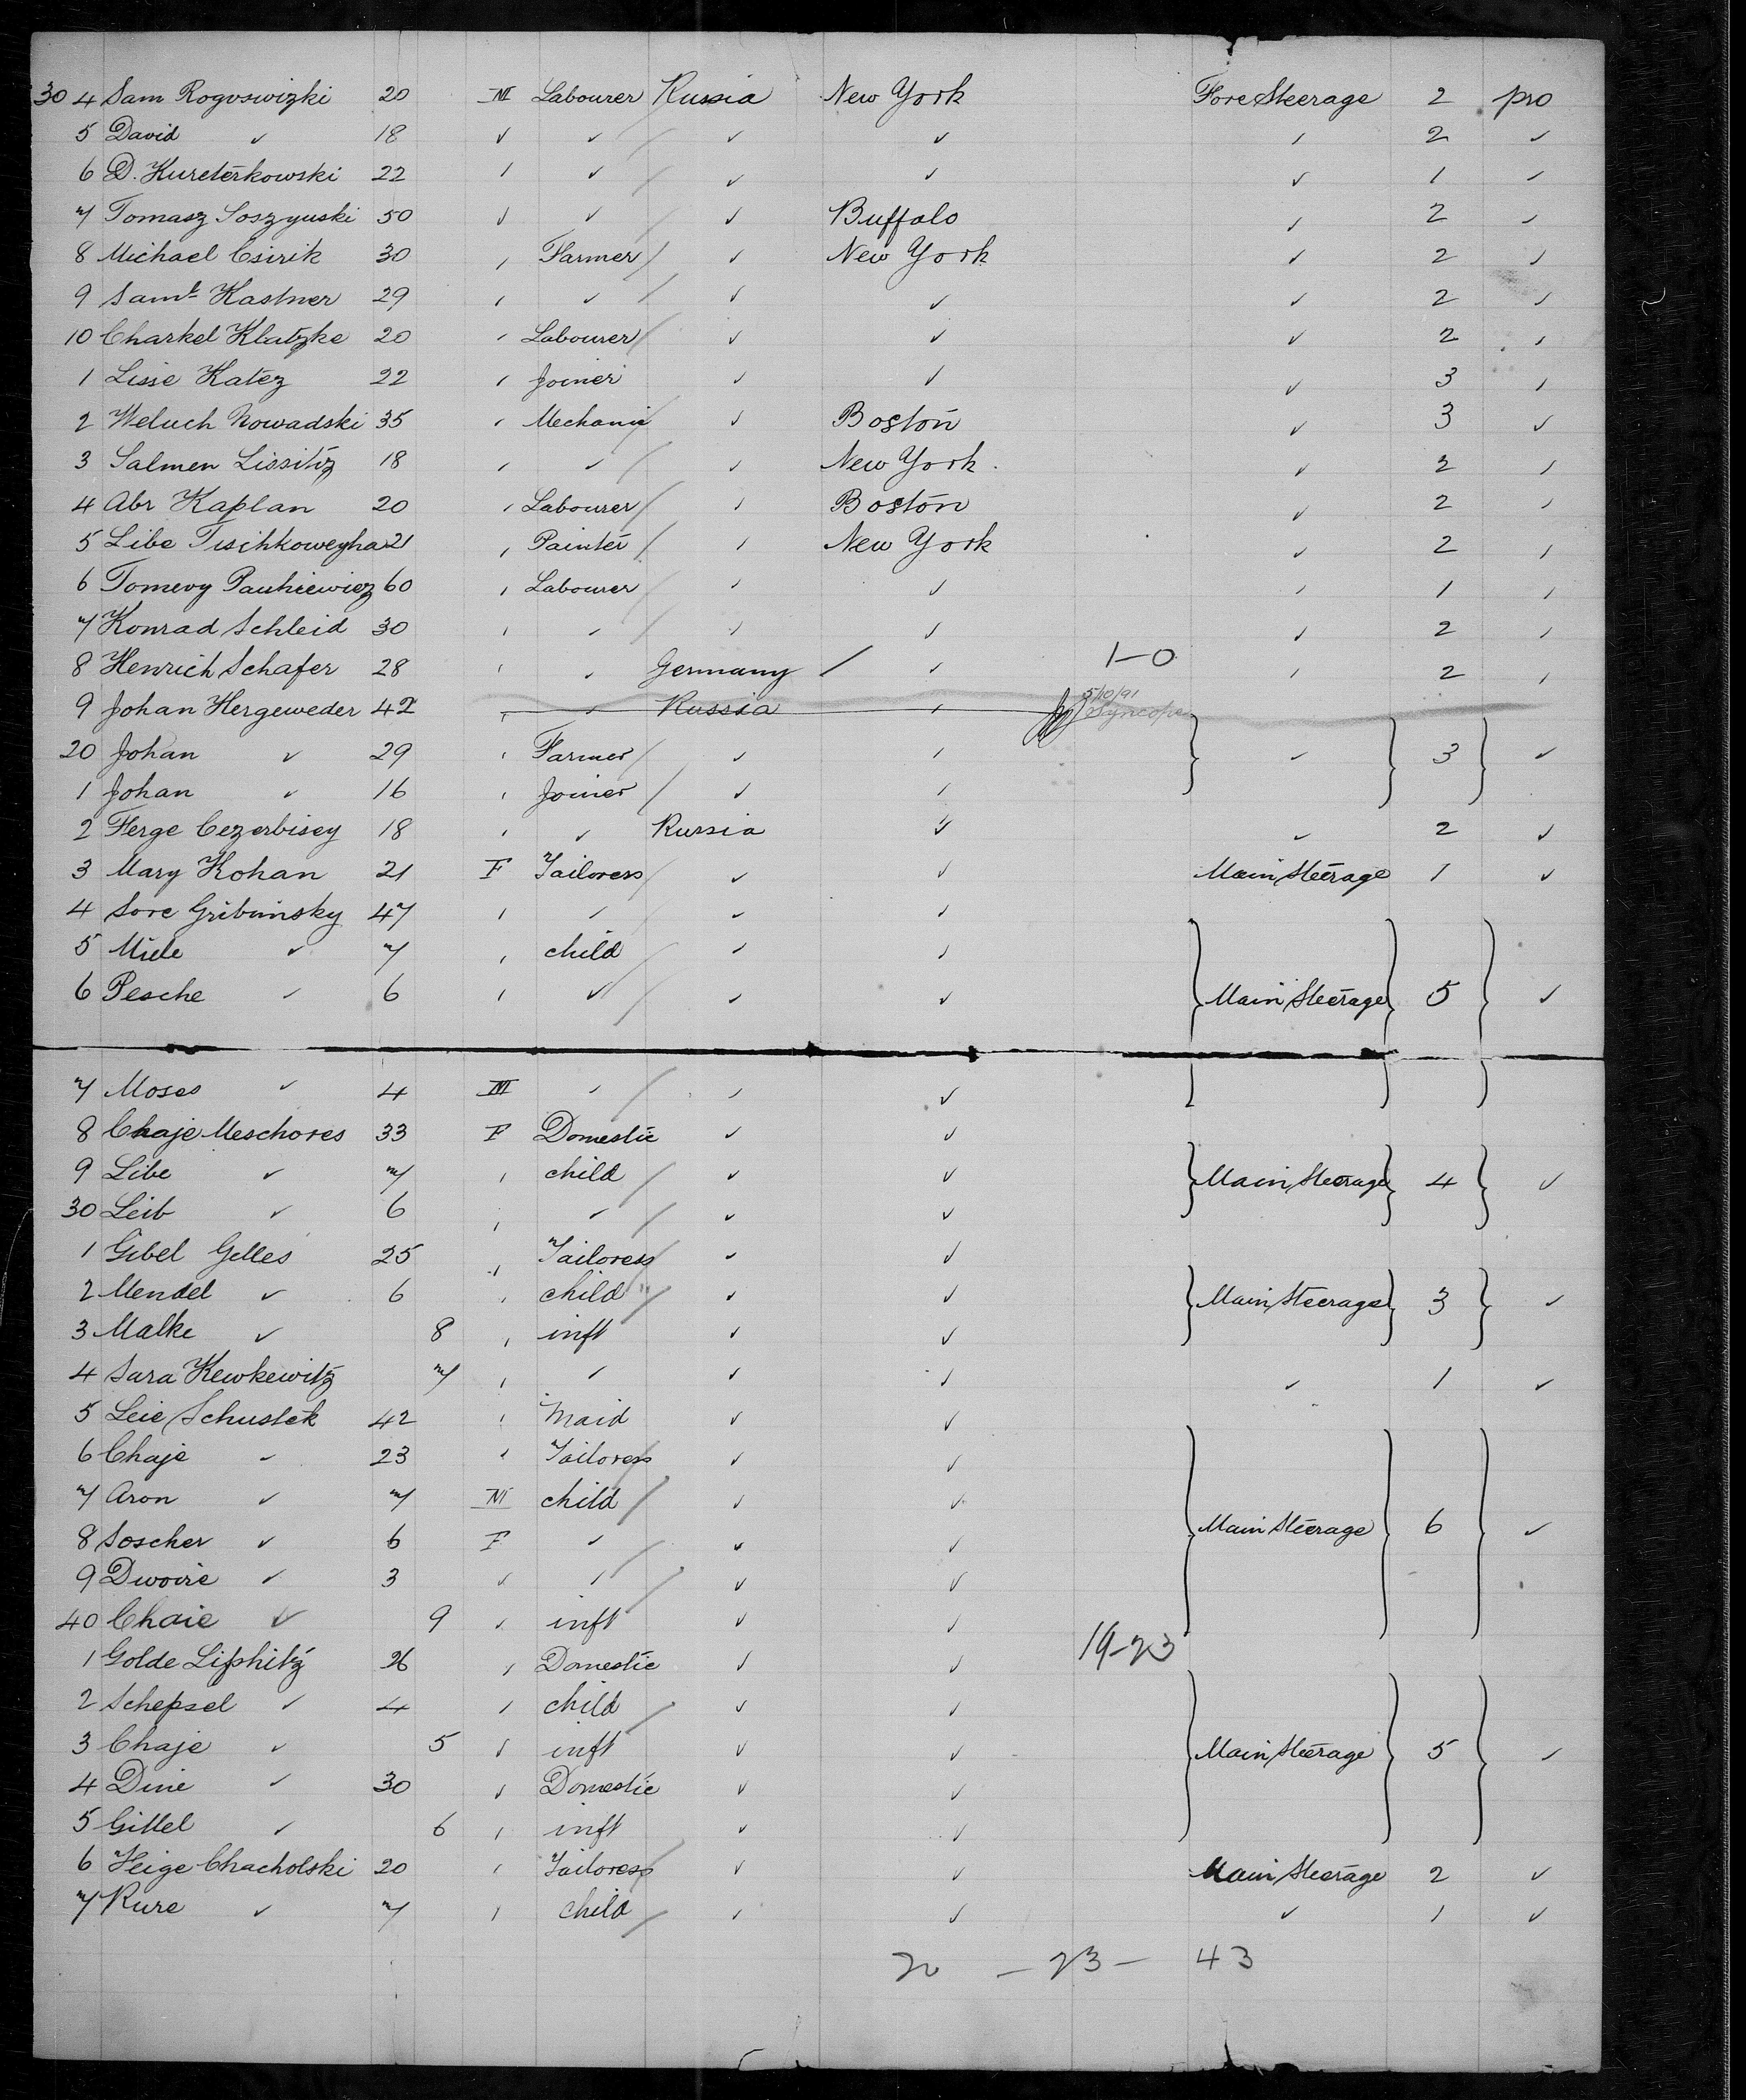 30 4 Sam Rogoswizki 20 M Labourer Russia New York Fore Steerage 2 pro
5 David ✓ 18 ✓ ✓ ✓ ✓ ✓ 2 ✓
6 D. Kureterkowski 22 ✓ ✓ ✓ ✓ ✓ 1 ✓
7 Tomasz Soszyuski 50 ✓ ✓ ✓ Buffalo ✓ 2 ✓
8 Michael Csirik 30 ✓ Farmer ✓ New York ✓ 2 ✓
9 Saml Kastner 29 ✓ ✓ ✓ ✓ ✓ 2 ✓
10 Charkel Klatzke 20 ✓ Labourer ✓ ✓ ✓ 2 ✓
1 Lisie Katez 22 ✓ Joiner ✓ ✓ ✓ 3 ✓
2 Weluch Nowadski 35 ✓ Mechanic ✓ Boston ✓ 3 ✓
3 Salmen Lissitiz 18 ✓ ✓ ✓ New York. ✓ 2 ✓
4 Abr Kaplan 20 ✓ Labourer ✓ Boston ✓ 2 ✓
5 Libe Tischkoweyha 21 ✓ Painter ✓ New York ✓ 2 ✓
6 Tomevy Pauhiewiez 60 ✓ Labourer ✓ ✓ ✓ 1 ✓
7 Konrad Schleid 30 ✓ ✓ ✓ ✓ ✓ 2 ✓
8 Henrich Schafer 28 ✓ ✓ Germany ✓ 1-0 ✓ 2 ✓
9 Johan Hergeweder 42 ✓ ✓ Russia ✓ 5/10/91 Syncope
20 Johan ✓ 29 ✓ Farmer ✓ ✓ ✓ 3 ✓
1 Johan ✓ 16 ✓ Joiner ✓ ✓
2 Ferge Cezerbisey 18 ✓ ✓ Russia ✓ ✓ 2 ✓
3 Mary Kohan 21 F Tailoress ✓ ✓ Main Steerage 1 ✓
4 Sore Gribunsky 47 ✓ ✓ ✓ ✓
5 Miele ✓ 7 ✓ child ✓ ✓
6 Pesche ✓ 6 ✓ ✓ ✓ ✓ Main Steerage 5 ✓
7 Moses ✓ 4 M ✓ ✓ ✓
8 Chaje Meschores 33 F Domestic ✓ ✓
9 Libe ✓ 7 ✓ child ✓ ✓ Main Steerage 4 ✓
30 Leib ✓ 6 ✓ ✓ ✓ ✓
1 Gibel Gelles 25 ✓ Tailoress ✓ ✓
2 Mendel ✓ 6 ✓ child ✓ ✓ Main Steerage 3 ✓
3 Malke ✓ 8 ✓ inft ✓ ✓
4 Sara Kewkewitz 7 ✓ ✓ ✓ ✓ ✓ 1 ✓
5 Leie Schustek 42 ✓ Maid ✓ ✓
6 Chaje ✓ 23 ✓ Tailoress ✓ ✓
7 Aron ✓ 7 M child ✓ ✓
8 Soscher ✓ 6 F ✓ ✓ ✓ Main Steerage 6 ✓
9 Dwoire ✓ 3 ✓ ✓ ✓ ✓
40 Chaie ✓ 9 ✓ inft ✓ ✓
1 Golde Lifshitz 26 ✓ Domestic ✓ ✓ 19-23
2 Schepsel ✓ 4 ✓ child ✓ ✓
3 Chaje ✓ 5 ✓ inft ✓ ✓ Main Steerage 5 ✓
4 Dine ✓ 30 ✓ Domestic ✓ ✓
5 Gittel ✓ 6 ✓ inft ✓ ✓
6 Feige Chacholski 20 ✓ Tailoress ✓ ✓ Main Steerage 2 ✓
7 Rure ✓ 7 ✓ child ✓ ✓ ✓ 1 ✓
20 - 23 - 43